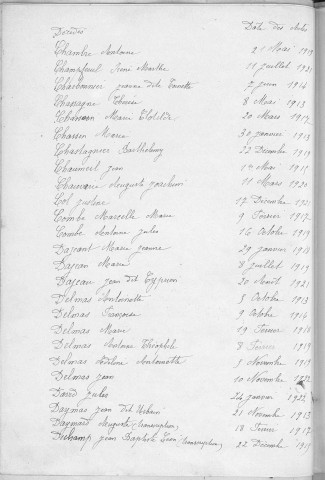 Décédés Date des Actes
Chambre Antoine 21 Mai 1919
Champfeuil René Marthe 11 juillet 1921
Charbonnier jeanne dite 7 juin 1914
Chassagne 8 Mai 1913
Marie Clotilde 20 Mars 1917
Chassin Marie 30 janvier 1918
Chastagnier Barthélemy 22 Décembre 1919
Chaumeil jean Mai 1915
Auguste joachim 11 Mars 1920
Col justine 17 Décembre 1921
Combe Marcelle Marie 9 Février 1917
Combe Antoine jules 16 Octobre 1919
Marie jeanne 29 janvier 1918
Marie 8 juillet 1919
jean dit Cyprien 20 Août 1921
Delmas Antoinette 3 Octobre 1913
Delmas Françoise 9 Octobre 1914
Delmas Marie 19 Février 1918
Delmas Antoine Théophile 8 Février 1919
Delmas Antoinette 3 Novembre 1919
Delmas jean 10 Novembre 1922
David jules 24 janvier 1922
Daymas jean dit Urbain 21 Novembre 1913
Daymard Auguste (transcription) 18 Février 1917
Dechamp jean Baptiste (transcription) 22 Décembre 1919